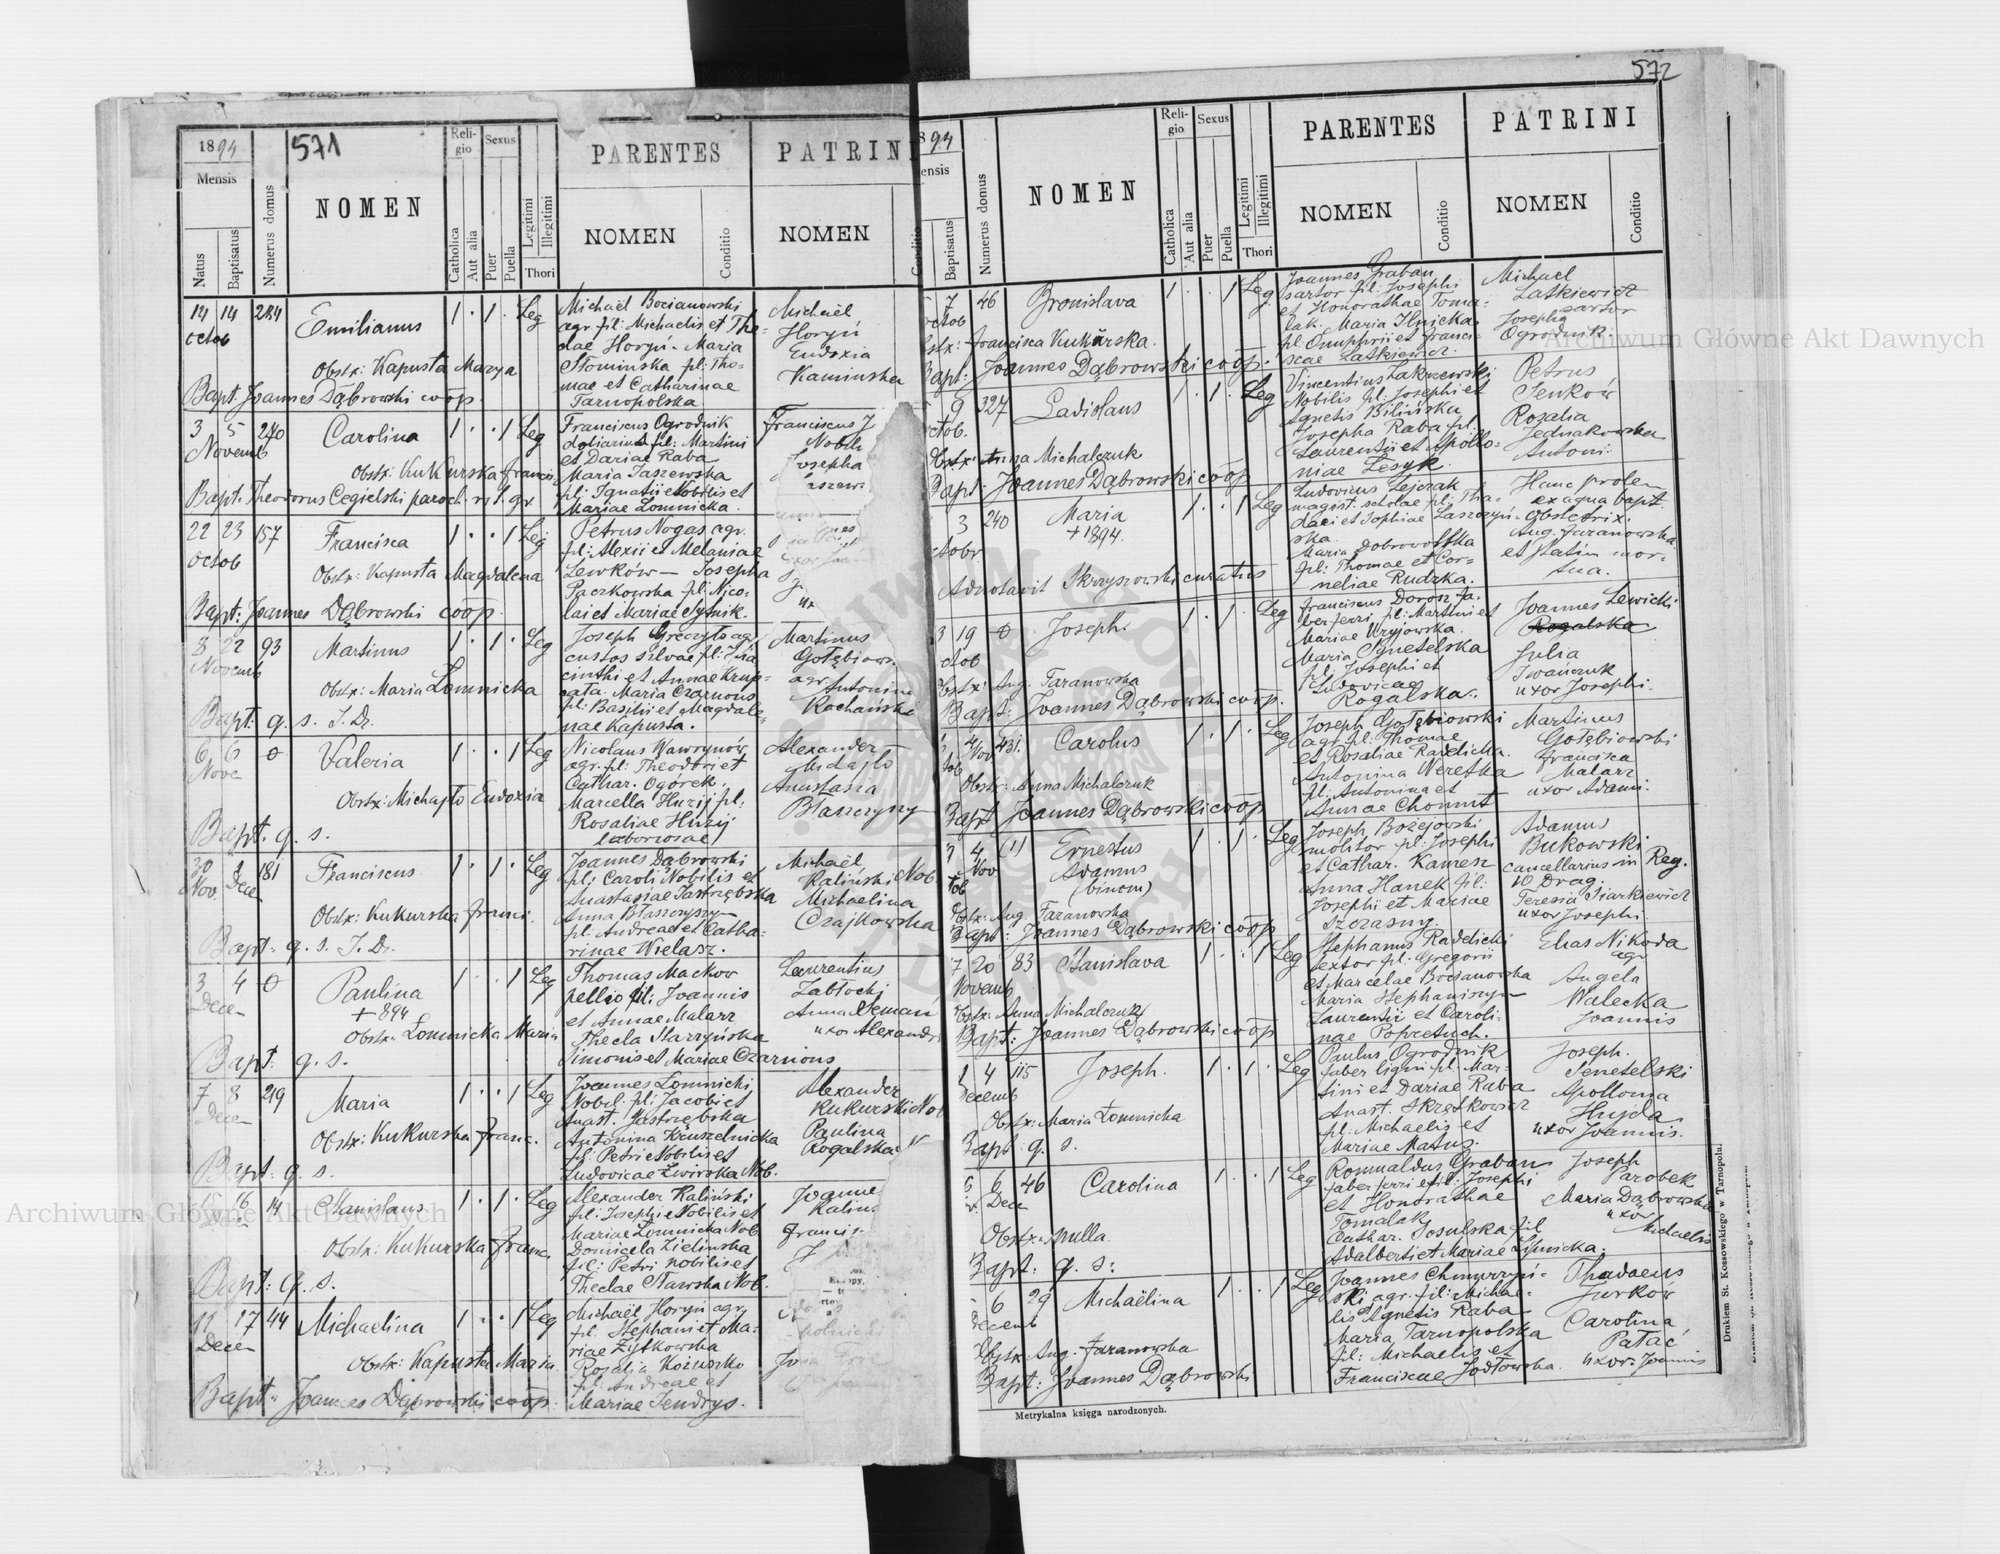 571
1894
Mensis
Natus
Baptisatus
Numerus domus
NOMEN
Religio
Catholica
Aut alia
Sexus
Puer
Puella
Legitimi
Illegitimi
Thori
PARENTES
NOMEN
Conditio
PATRINI
NOMEN
Conditio
14 14 284 Emilianus 1 · 1 · Leg
Octob
Obstx: Kapusta Marya
Bapt Joannes Dąbrowski coop.
Michael Bocianowski
agr. fil: Michaelis et The-
clae Horyń - Maria
Słomińska fil: Tho-
mae et Catharinae
Tarnopolska
Michaël
Horyń
Eudoxia
Kaminska
3 5 240 Carolina 1 · · 1 Leg
Novemb
Obstx: Kukurska Francis
Bapt. Theodorus Cegielski paroch. rit. gr.
Franciscus Ogrodnik
doliarius fil: Martini
et Dariae Raba
Maria Jaszewska
fil: Ignatii Nobilis et
Mariae Łomnicka.
Franciscus J
Nobil
Josepha
22 23 157 Francisca 1 · · 1 Leg
Octob
Obstx: Kapusta Magdalena
Bapt: Joannes Dąbrowski coop.
Petrus Nogas agr.
fil: Alexii et Melaniae
Lewków — Josepha
Paczkowska fil: Nico-
lai et Mariae Sytnik.
8 22 93 Martinus 1 · 1 · Leg
Novemb
Obstx: Maria Łomnicka
Bapt: q. s. J. Dr.
Joseph Greczyło agr
custos silvae fil: Hia
cinthi et Annae Krup-
Maria Czarnous
fil: Basilii et Magdale-
nae Kapusta.
Martinus
Gołębiow
agr
Antonina
Kochańska
6 6 0 Valeria 1 · · 1 Leg
Nove
Obstx: Michajło Eudoxia
Bapt. q. s.
Nicolaus Wawrynów
agr. fil: Theodori et
Cathar. Ogórek.
Marcella Huzij fil:
Rosaliae Huzij
laboriosae
Alexander
Midajło
Anastasia
Błaszczyszy
30 2 181 Franciscus 1 · 1 · Leg
Nov. Dece
Obstx: Kukurska Franci.
Bapt: q. s. J. Dr.
Joannes Dąbrowski
fil: Caroli Nobilis et
Anastasiae Jastrzębska
Anna Błaszczyszyn
fil: Andreae et Catha-
rinae Wielasz.
Michaël
Kaliński Nob.
Michaelina
Czajkowska
3 4 0 Paulina 1 · · 1 Leg
Dece
+ 894
Obstx: Łomnicka Maria
Bapt: q. s.
Thomas Mackow
pellio fil: Joannis
et Annae Malarz
Thecla Starzyńska
Simonis et Mariae Czarnous
Laurentius
Zabłocki
Anna Deman
uxor Alexandri
7 8 219 Maria 1 · · 1 Leg
Dece
Obstx: Kukurska Franc.
Bapt: q. s.
Joannes Łomnicki
Nobil. fil: Jacobi et
Anast. Jastrzębska
Antonina Kruszelnicka
fil: Petri Nobilis et
Ludovicae Zwirska Nob.
Alexander
Kukurski Nob
Paulina
Rogalska
15 16 14 Stanislaus 1 · 1 · Leg
Obstx: Kukurska Franc.
Bapt: q. s.
Alexander Kaliński
fil: Josephi Nobilis et
Mariae Łomnicka Nob.
Domicela Zielinska
fil: Petri nobilis et
Theclae Stawska Nob.
Joanne
Kalin
Francis
12 17 44 Michaelina 1 · · 1 Leg
Dece
Obstx: Kapusta Maria.
Bapt. Joannes Dąbrowski coop.
Michaël Horyń agr.
fil. Stephani et Ma-
riae Żytkowska
Rosalia Kościuszko
fil: Andreae et
Mariae Jendrys.
572
894
ensis
Baptisatus
Numerus domus
NOMEN
Religio
Catholica
Aut alia
Sexus
Puer
Puella
Legitimi
Illegitimi
Thori
PARENTES
NOMEN
Conditio
PATRINI
NOMEN
Conditio
7 46 Bronislava 1 · · 1 Leg
ctob
bstx: Francisca Kukurska.
Bapt: Joannes Dąbrowski coop.
Joannes Graban
sartor fil: Josephi
et Honorathae Toma-
lak. Maria Ilnicka
fil Onuphrii et Franci-
scae Latkiewicz.
Michael
Latkiewicz
sartor
Josepha
Ogrodnik
9 327 Ladislaus 1 · 1 · Leg
ctob.
Obstx: Anna Michalczuk
Bapt: Joannes Dąbrowski coop
Vincentius Zakrzewski
Nobilis fil: Josephi et
Agnetis Bilińska
Josepha Raba fil:
Laurentii et Apollo-
niae Zesyk.
Petrus
Senków
Rosalia
Jednakowska
Antoni.
3 240 Maria 1 · · 1 Leg
+ 1894.
ctobr
Adnotavit Skrzyszowski curatus
Ludovicus Lejczak
magist. scholae fil: Tha-
daei et Sophiae Laszczyń-
ska.
Maria Dobrowolska
fil: Thomae et Cor-
neliae Rudzka.
Hanc prolem
ex aqua bapt.
obstetrix.
Aug. Taranowska
et statim mor-
tua.
3 19 0 Joseph. 1 · 1 · Leg
ctob
Obstx: Aug. Taranowska
Bapt: Joannes Dąbrowski coop.
Franciscus Dorosz fa-
ber ferri, fil: Martini et
Mariae Uryjowska.
Maria Senetelska
fil: Josephi et
Ludovicae
Rogalska.
Joannes Lewicki
Rogalska
Julia
Iwańczuk
uxor Josephi.
4 431. Carolus 1 · 1 · Leg
Nov
tob
Obstx: Anna Michalczuk
Bapt Joannes Dąbrowski coop
Joseph Gołębiowski
agr. fil: Thomae
et Rosaliae Radelicka.
Antonina Weretka
fil: Antonina et
Annae Chomut
Martinus
Gołębiowski
Francisca
Malarz
uxor Adami.
4 (1) Ernestus 1 · 1 · Leg
Nov Adamus
tob (binom)
Obstx: Aug. Taranowska
Bapt: Joannes Dąbrowski coop
Joseph Bożejowski
molitor fil: Josephi
et Cathar. Kamesz
Anna Hanek fil:
Josephi et Mariae
Szczasny.
Adamus
Bukowski
cancellarius in Reg.
10 Drag.
Teresia Siarkiewicz
uxor Josephi.
7 20 83 Stanislava 1 · · 1 Leg
Novemb
Obstx: Anna Michalczuk
Bapt: Joannes Dąbrowski coop
Stephanus Radelicki
textor fil: Gregorii
et Marcelae Bocianowska
Maria Stephaniszyn
Laurentii et Caroli-
nae Popretuch.
Elias Nikoda
agr
Angela
Walecka
Joannis
4 115 Joseph. 1 · 1 · Leg
Decemb
Obstx: Maria Łomnicka
Bapt: q. s.
Paulus Ogrodnik
faber lignr fil: Mar-
tini et Dariae Raba
Anast. Skrętkowicz
fil: Michaelis et
Mariae Matus.
Joseph.
Senetelski
Apollonia
Hujda
uxor Joannis.
6 46 Carolina 1 · · 1 Leg
Dece
Obstx: nulla.
Bapt: q. s.
Romualdus Graban
faber ferri fil. Josephi
et Honorathae
Tomalak
Cathar. Sosulska fil
Adalberti et Mariae Ilnicka.
Joseph
Parobek
Maria Dąbrowska
uxor
Michaelis
6 29 Michaëlina 1 · · 1 Leg
Decemb
Obstx: Aug. Taranowska
Bapt: Joannes Dąbrowski
Joannes Chmurzyń-
ski agr. fil: Michae-
lis Agnetis Raba
Maria Tarnopolska
fil: Michaelis et
Franciscae Jodłowska.
Thadaeus
Jurków
Carolina
Pałać
uxor Joannis
Metrykalna księga narodzonych.
Drukiem St. Kossowskiego w Tarnopolu.
Archiwum Główne Akt Dawnych
Archiwum Główne Akt Dawnych